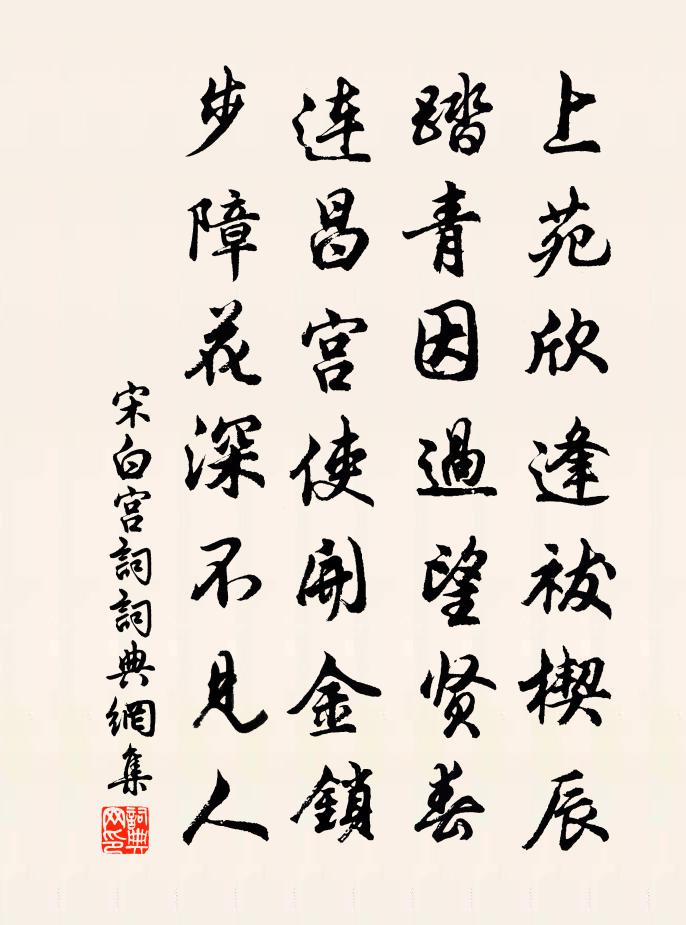 上苑欣逢祓楔辰
踏青因過望贤春
连昌宫使開金鎖
步障花深不见人
宋白宫詞詞典網集
詞典網印